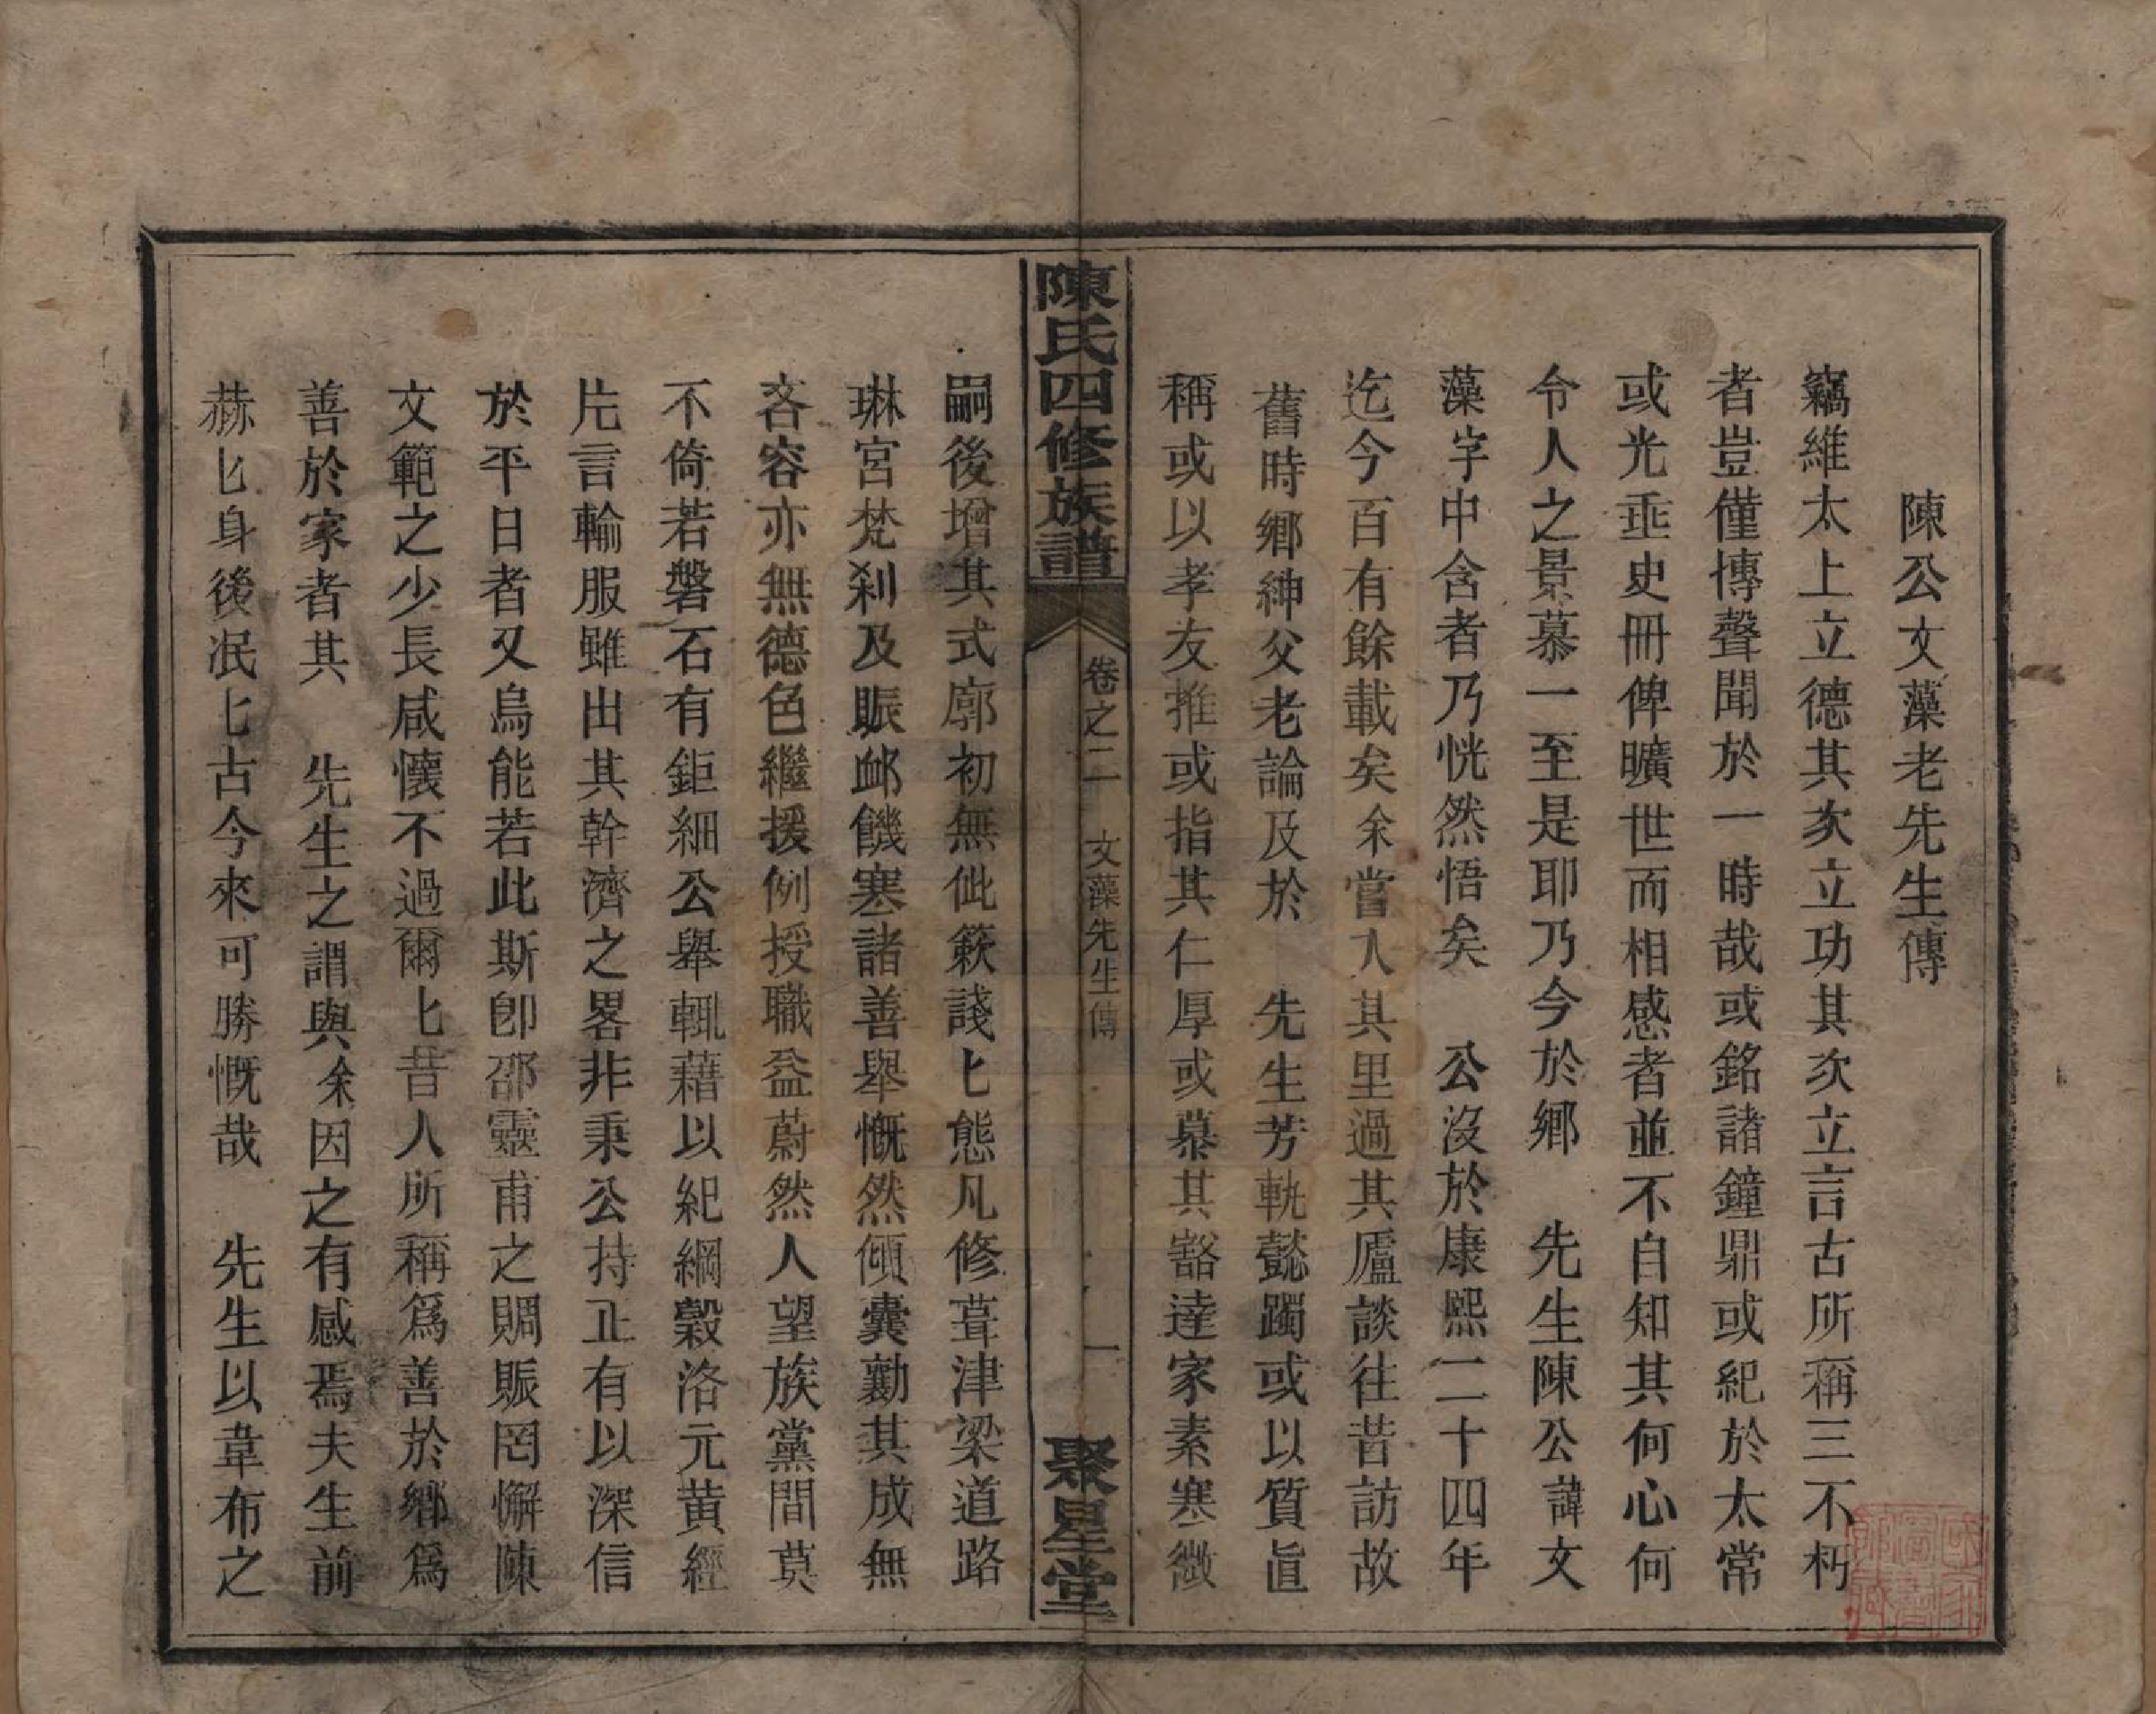 陳公文藻老先生傳
竊維太上立德其次立功其次立言古所稱三不朽
者豈僅博聲聞於一時哉或銘諸鐘鼎或紀於太常
或光垂史冊俾曠世而相感者並不自知其何心何
令人之景慕一至是耶乃今於鄉　先生陳公諱文
藻字中含者乃恍然悟矣　公沒於康熙二十四年
迄今百有餘載矣余嘗入其里過其廬談往昔訪故
舊時鄉紳父老論及於　先生芳軌懿躅或以質眞
稱或以孝友推或指其仁厚或慕其豁達家素寒微
陳氏四修族譜　卷之二　文藻先生傳　一　聚星堂
嗣後增其式廓初無仳簌諓匕態凡修葺津梁道路
琳宮梵刹及賑䘏饑寒諸善舉慨然傾囊勷其成無
吝容亦無德色繼援例授職益蔚然人望族黨間莫
不倚若磐石有鉅細公舉輒藉以紀綱穀洛元黃經
片言輸服雖出其幹濟之畧非秉公持正有以深信
於平日者又烏能若此斯卽邵靈甫之賙賑罔懈陳
文範之少長咸懷不過爾匕昔人所稱爲善於鄉爲
善於家者其　先生之謂與余因之有感焉夫生前
赫匕身後泯匕古今來可勝慨哉　先生以韋布之